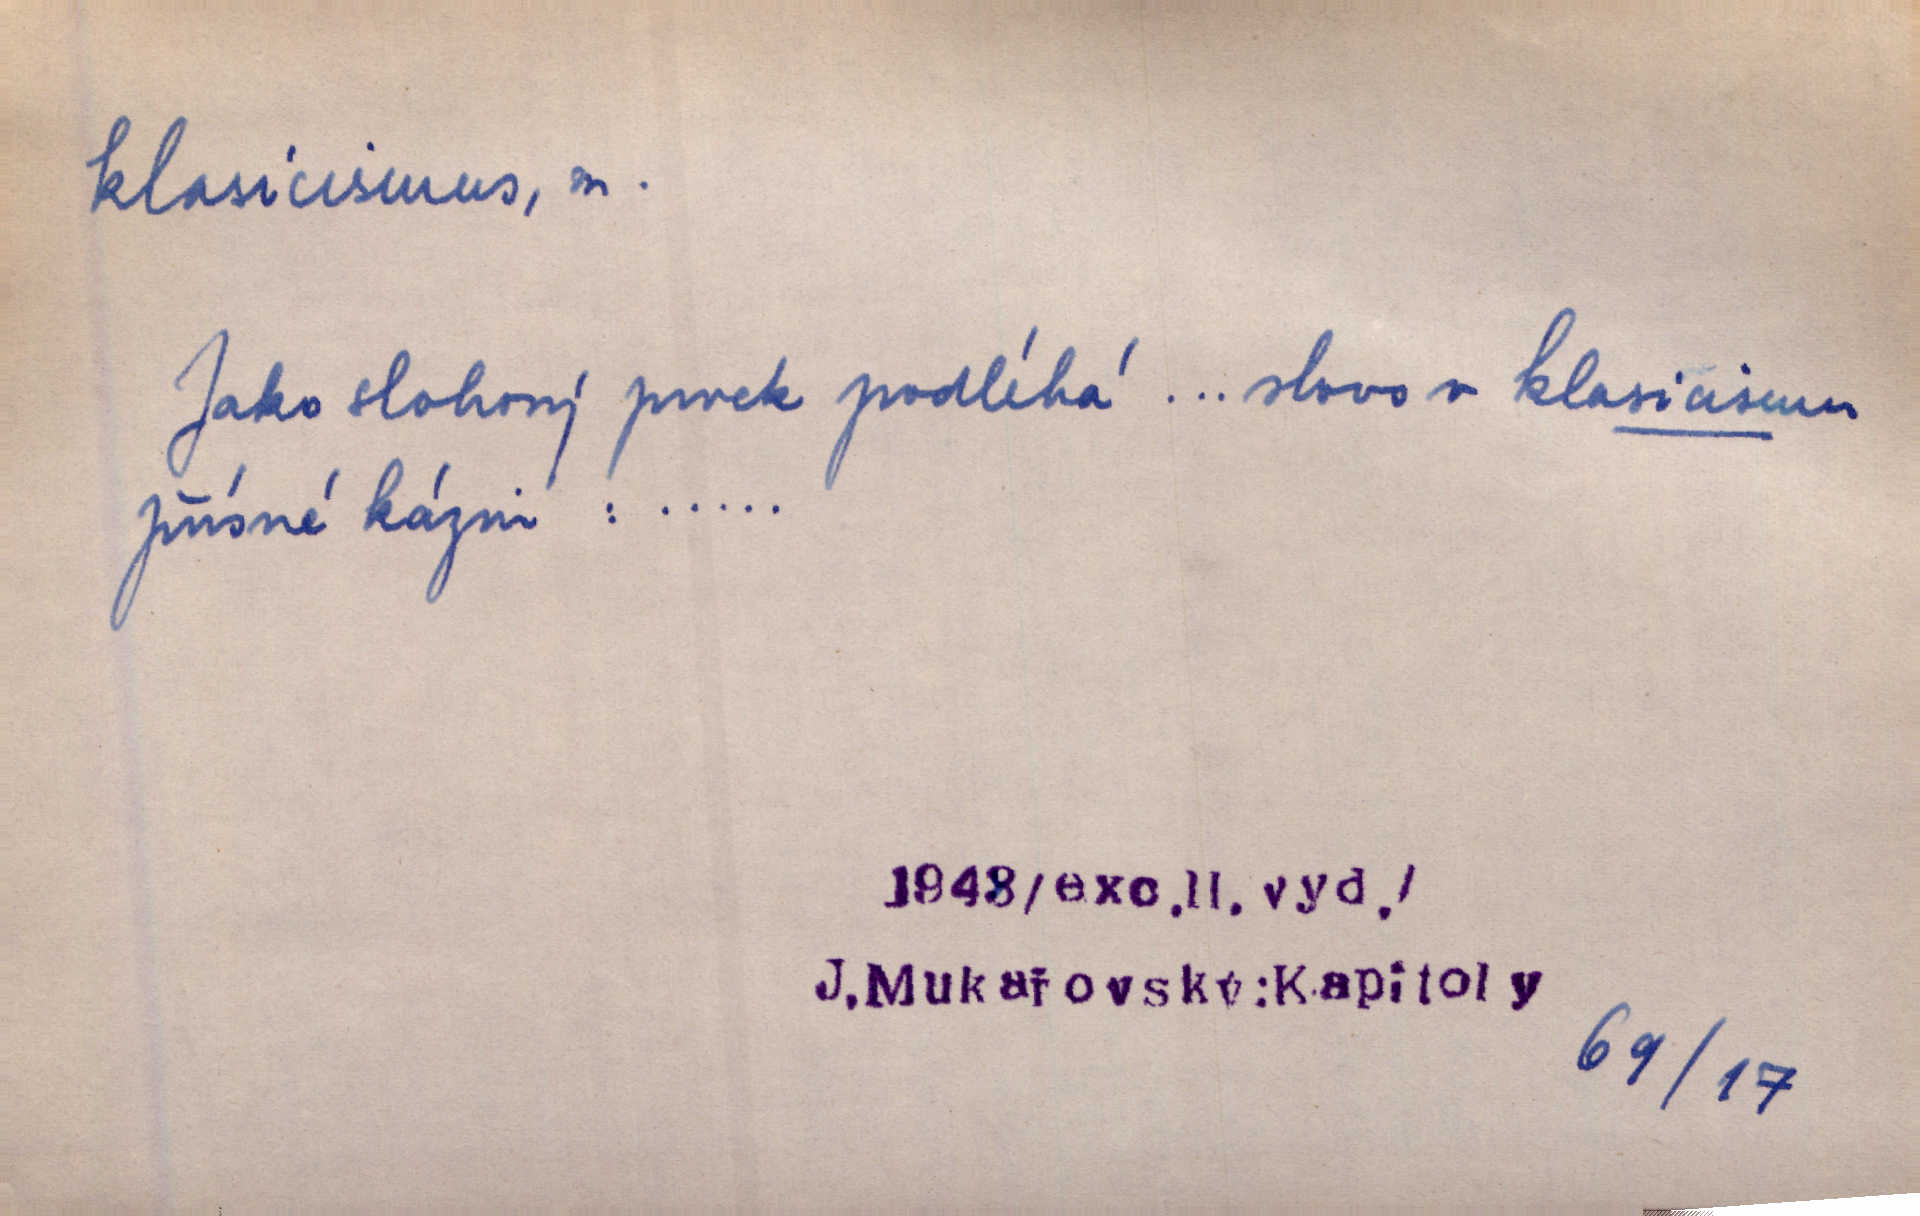 klasicismus, m.
Jako slohový prvek podléhá ... slovo v klasicismu
přísné kázni : .....
1948/exc.II.vyd./
J.Mukařovský:Kapitoly
69/17